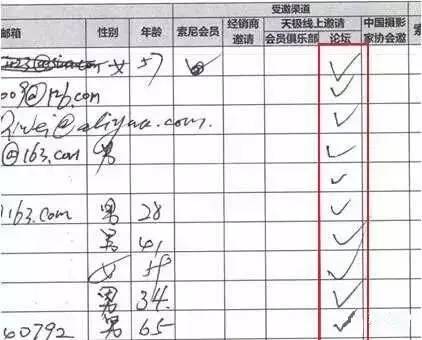 受邀渠道
邮箱 性别 年龄 索尼会员 经销商邀请 天极线上邀请 中国摄影家协会邀 索
会员俱乐部 论坛
女 57 ✓ ✓
009@126.com ✓
@aliyun.com. ✓
@163.com 男 ✓
✓
163.com 男 28 ✓
男 41 ✓
女 ✓
男 34. ✓
60792 男 65 ✓